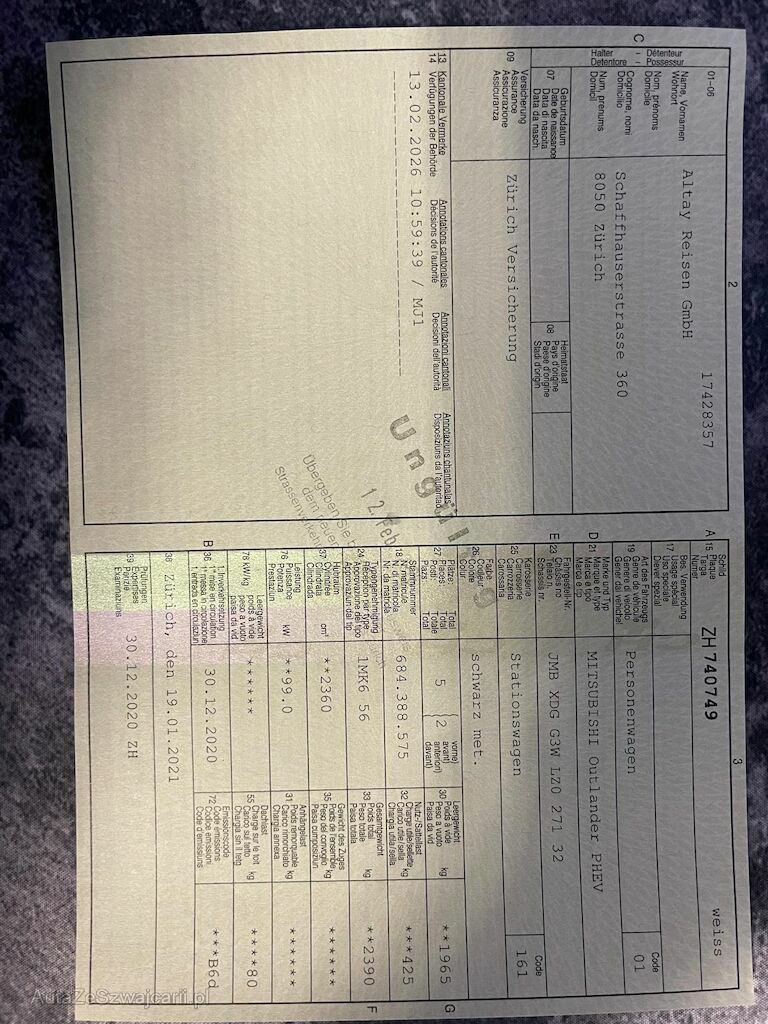 C
2
Halter - Détenteur
Detentore - Possessur
01-06
17428357
Name, Vornamen
Wohnort
Nom, prénoms
Domicile
Cognome, nomi
Domicilio
Num, prenums
Domicil
Altay Reisen GmbH
Schaffhauserstrasse 360
8050 Zürich
07
Geburtsdatum
Date de naissance
Data di nascita
Data da nasch.
08
Heimatstaat
Pays d'origine
Paese d'origine
Stadi d'origin
09
Versicherung
Assurance
Assicurazione
Assicuranza
Zürich Versicherung
13 Kantonale Vermerke Annotations cantonales Annotazioni cantonali Annotaziuns chantunalas
14 Verfügungen der Behörde Décisions de l'autorité Decisioni dell'autorità Disposiziuns da l'autoritad
13.02.2026 10:59:39 / MJ1
12. Feb
Übergeben Sie
3
A 15
Schild
Plaque
Targa
Numer
ZH 740749
weiss
17
Bes. Verwendung
Usage spécial
Uso speciale
Diever spezial
19
Art des Fahrzeugs
Genre de véhicule
Genere di veicolo
Gener da vehichel
Personenwagen
Code
01
D 21
Marke und Typ
Marque et type
Marca e tipo
Marca e tip
MITSUBISHI Outlander PHEV
E 23
Fahrgestell-Nr.
Châssis no
Telaio n.
Schassis nr.
JMB XDG G3W LZ0 271 32
25
Karosserie
Carrosserie
Carrozzeria
Carossaria
Stationswagen
Code
161
26
Farbe
Couleur
Colore
Colur
schwarz met.
27
Plätze: Total
Places: Total
Posti: Totale
Plazs: Total
5
2
vorne)
avant)
anteriori)
davant)
30
Leergewicht
Poids à vide kg
Peso a vuoto
Paisa da vid
**1965
G
18
Stammnummer
N° matricule
N. di matricola
Nr. da matricla
684.388.575
32
Nutz-/Sattellast
Charge utile/sellette
Carico utile / sella kg
Chargia utila / sella
***425
24
Typengenehmigung
Réception par type
Approvazione del tipo
Approvaziun dal tip
1MK6 56
33
Gesamtgewicht
Poids total kg
Peso totale
Paisa totala
**2390
F
37
Hubraum
Cylindrée cm³
Cilindrata
Cilindrada
**2360
35
Gewicht des Zuges
Poids de l'ensemble kg
Peso del convoglio
Paisa cumposiziun
******
76
Leistung
Puissance kW
Potenza
Prestaziun
**99.0
31
Anhängelast
Poids remorquable kg
Carico rimorchiato
Chargia annexa
******
78 kW/kg
Leergewicht
poids à vide
peso a vuoto
paisa da vid
******
55
Dachlast
Charge sur le toit kg
Carico sul tetto
Chargia sin il tetg
****80
B 36
1. Inverkehrsetzung
1re mise en circulation
1a messa in circolazione
1. entrada en circulaziun
30.12.2020
72
Emissionscode
Code émissions
Codice emissioni
Code d'emissiuns
***B6d
38
Zürich, den 19.01.2021
39
Prüfungen
Expertises
Perizie
Examinaziuns
30.12.2020 ZH
AutaZeSzwajcarii.pl